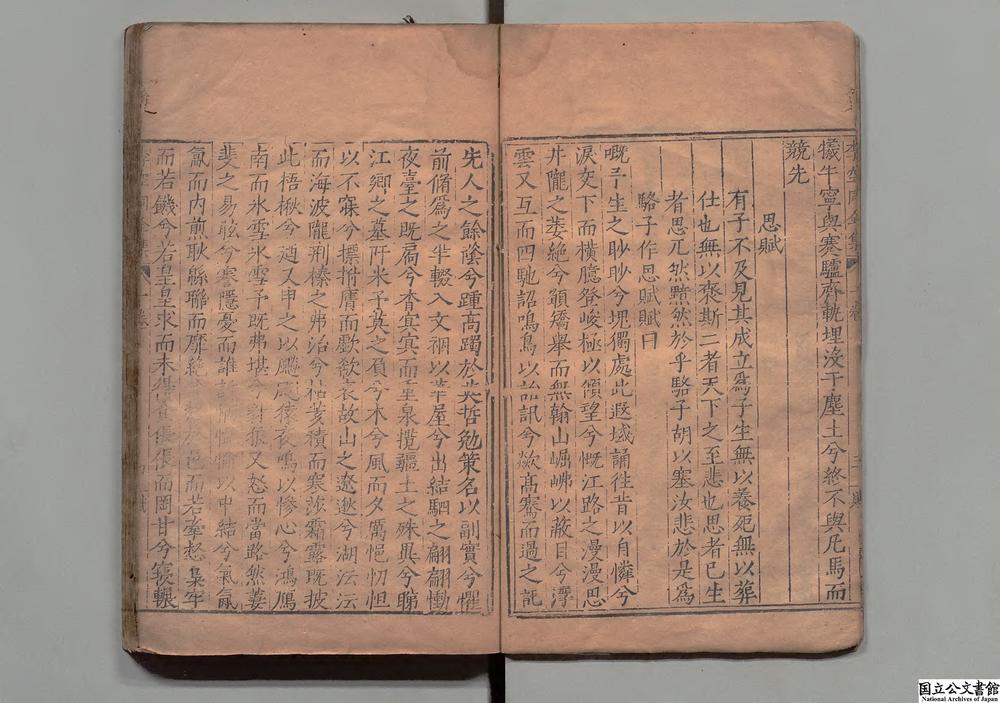 犧牛寧與蹇驢齊軌埋沒干塵土兮終不與凡馬而
競先
思賦
有子不及見其成立為子生無以養死無以葬
仕也無以褒斯二者天下之至悲也思者已生
者思兀然黯然於乎駱子胡以塞汝悲於是為
駱子作思賦賦曰
嘅予生之眇眇兮塊獨處此遐域誦往昔以自憐兮
淚交下而橫臆登峻極以傾望兮慨江路之漫漫思
井隴之萎絕兮顧矯舉而無翰山崛岪以蔽目兮灣
雲又互而四馳詔鳴鳥以訊兮欻高騫而過之託
先人之餘蔭兮踵高躅於英哲勉策名以副實兮懼
前脩為之半輟入文祻以華屋兮出結駟之翩翩慟
夜臺之既扃兮杳冥冥而重泉攬疆土之殊異兮睇
江鄉之墓阡米予莫之負兮木兮風而夕厲悒忉怛
以不寐兮摽擗膺而歔欷哀故山之遼邈兮湖沄沄
而海波隴荆榛之弗治兮枯荄積而寒莎霜露既披
此梧楸兮廼又申之以飄風猿夜鳴以慘心兮鴻鴈
南而氷雪氷雪予既弗堪兮豺狼又怒而當路然萋
斐之易眩兮寋隱憂而誰以中結兮氣
而內煎耿緜聯而靡絕而若牽愁梟牢
而若饑兮若皇皇求而未得倀倀而罔甘兮寢輾
國立公文書館
National Archives of Japan